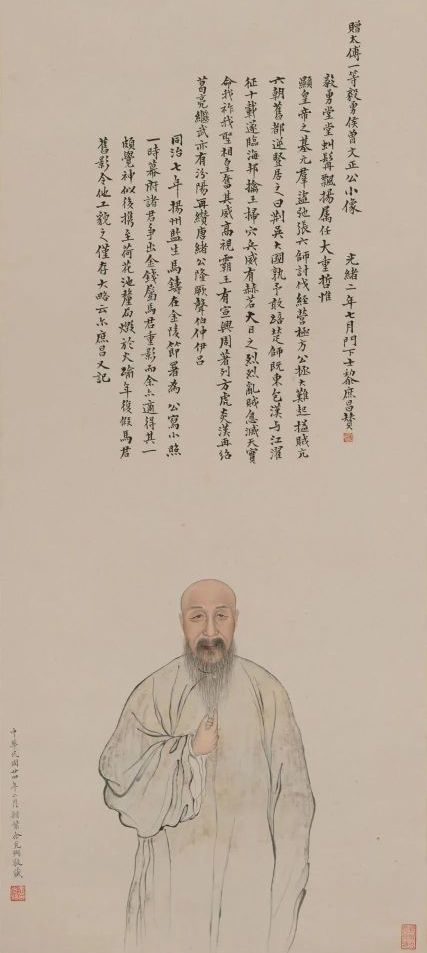 贈太傅一等毅勇侯曾文正公小像
光緒二年七月門下士黎庶昌贊
毅勇堂堂虯髯飄揚屬任大重哲惟
顯皇帝之基元羣盜弛張六師討伐經營極方公拯大難起搤賊亢
六朝舊都逆豎居之曰荆吳大國孰予敢楚師既東包漢与江濯
征十載遂臨海邦擒王掃穴兵威有赫若大日之烈烈亂賊息滅天實
命我祚我聖相皇奮其威高視霸王有宣興周著列方虎炎漢再紹
葛亮繼武亦有汾陽再纘唐緒公隆厥聲伯仲伊呂
同治七年揚州監生馬鑄在金陵節署為公寫小照
一時幕府諸君爭出金錢屬馬君重影而余亦適得其一
頗覺神似後攜至荷花池釐局燬於火踰年復假馬君
舊影令他工貌之僅存大略云尔庶昌又記
中華民國廿四年二月敬藏